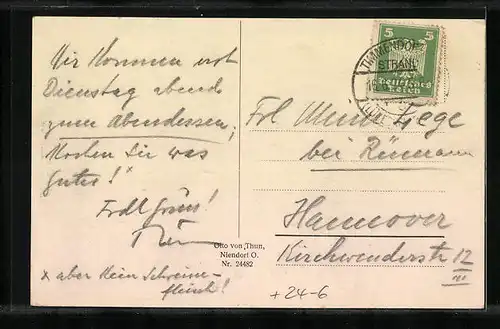 Wir kommen erst
Dienstag abend
zum Abendessen,
Kochen Sie was
gutes! *
Frdl Gruss!
* aber kein Schweine-
fleisch!
Otto von Thun,
Niendorf O.
Nr. 24482
5 5
Deutsches
Reich
TIMMENDORF
STRAND
Frl Minna Liege
bei Rümann
Hannover
Kirchwenderstr 12
III
+24-6